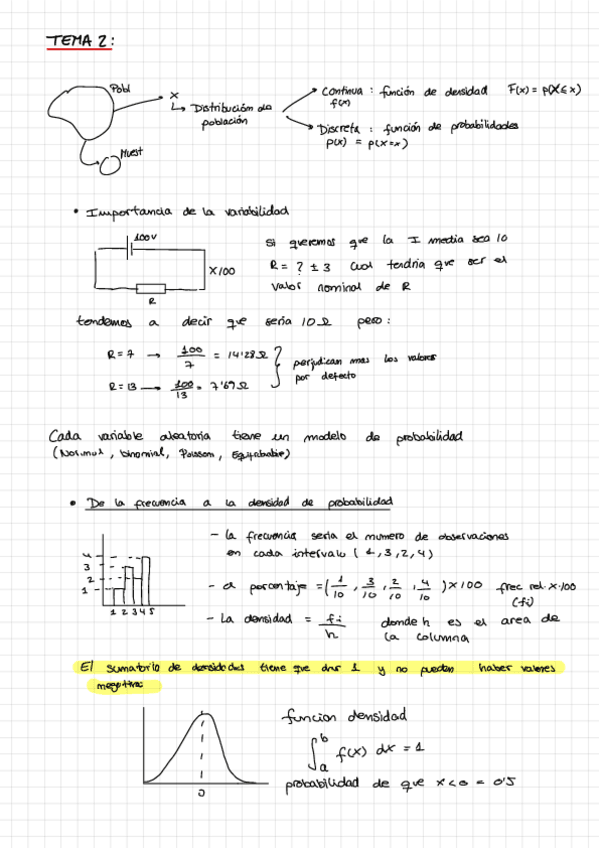 TEMA 2:
Pobl
x
Distribución de
población
Muest
Continua : función de densidad F(x) = p(X≤x)
f(x)
Discreta : función de probabilidades
p(x) = p(X=x)
• Importancia de la variabilidad
100V
X100
R
Si queremos que la I media sea 10
R = ? ± 3 cual tendria que ser el
valor nominal de R
tendemos a decir que seria 10Ω pero:
R = 7 → 100/7 = 14'28Ω
R = 13 → 100/13 = 7'69Ω
perjudican mas los valores
por defecto
Cada variable aleatoria tiene un modelo de probabilidad
(Normal, binomial, Poisson, Equiprobable)
• De la frecuencia a la densidad de probabilidad
4
3
2
1
1 2 3 4 5
- la frecuencia seria el numero de observaciones
en cada intervalo (1,3,2,4)
- el porcentaje = (1/10, 3/10, 2/10, 4/10) x100 frec rel. x100
(fi)
- La densidad = fi/h donde h es el area de
la columna
El sumatorio de densidades tiene que dar 1 y no pueden haber valores
negativos
funcion densidad
∫ₐᵇ f(x) dx = 1
probabilidad de que x<0 = 0'5
0